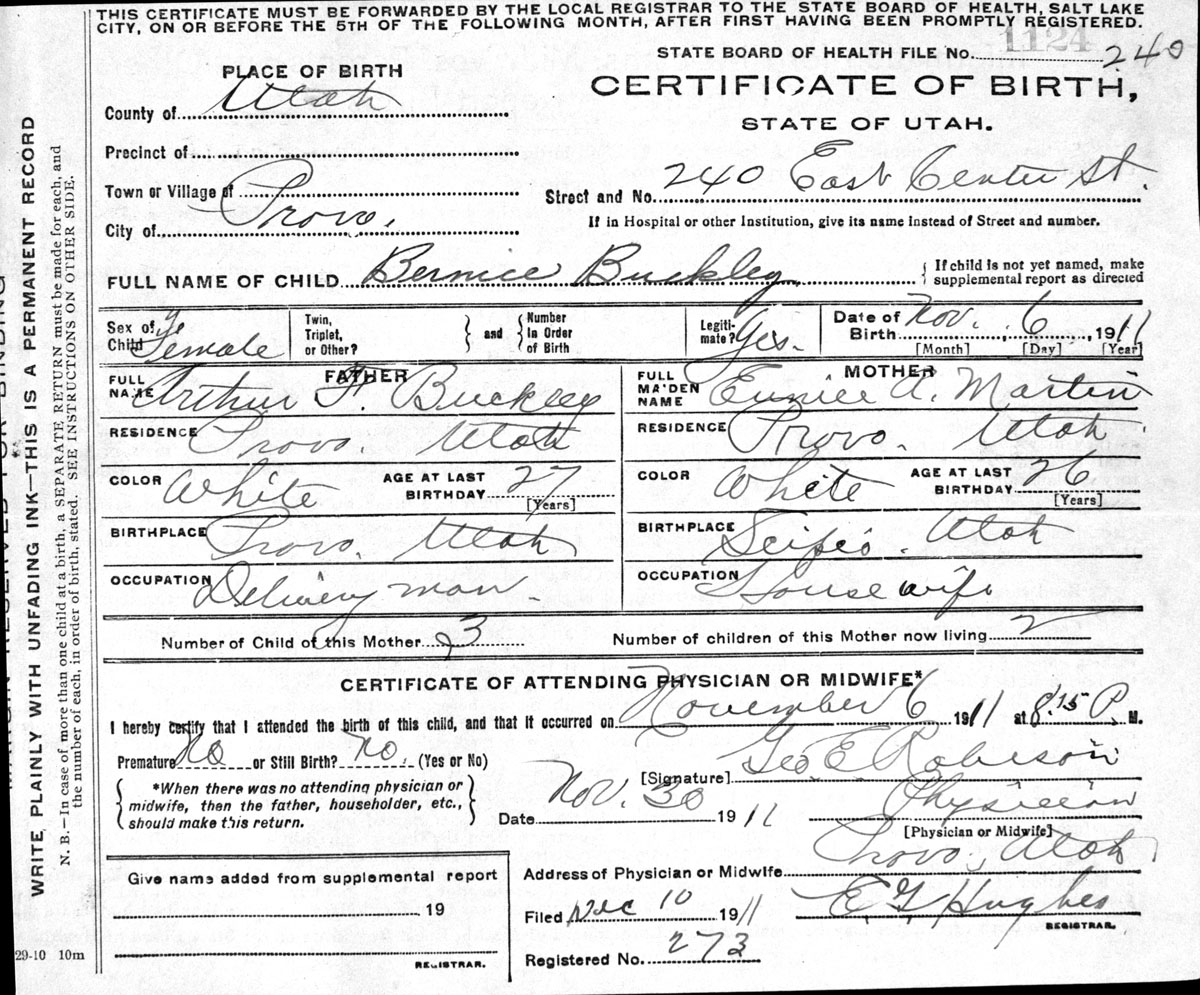 THIS CERTIFICATE MUST BE FORWARDED BY THE LOCAL REGISTRAR TO THE STATE BOARD OF HEALTH, SALT LAKE
CITY, ON OR BEFORE THE 5TH OF THE FOLLOWING MONTH, AFTER FIRST HAVING BEEN PROMPTLY REGISTERED.
1124
STATE BOARD OF HEALTH FILE No. 240
PLACE OF BIRTH
CERTIFICATE OF BIRTH,
County of Utah
STATE OF UTAH.
Precinct of
Town or Village of
Street and No. 240 East Center St.
City of Provo.
If in Hospital or other Institution, give its name instead of Street and number.
FULL NAME OF CHILD Bernice Buckley
{ If child is not yet named, make
supplemental report as directed
Sex of Child Female
Twin, Triplet, or Other?
} and {
Number In Order of Birth
Legitimate? Yes.
Date of Birth Nov. 6, 1911
[Month] [Day] [Year]
FATHER
MOTHER
FULL NAME Arthur F. Buckley
FULL MAIDEN NAME Eunice A. Martin
RESIDENCE Provo. Utah
RESIDENCE Provo. Utah.
COLOR White AGE AT LAST BIRTHDAY 27 [Years]
COLOR White AGE AT LAST BIRTHDAY 26 [Years]
BIRTHPLACE Provo. Utah
BIRTHPLACE Scipio. Utah
OCCUPATION Delivery man.
OCCUPATION House wife
Number of Child of this Mother 3 Number of children of this Mother now living 2
CERTIFICATE OF ATTENDING PHYSICIAN OR MIDWIFE*
I hereby certify that I attended the birth of this child, and that it occurred on November 6 1911 at 8:15 P. M.
Premature No or Still Birth? no. (Yes or No)
[Signature] Geo E. Robison
*When there was no attending physician or
midwife, then the father, householder, etc.,
should make this return.
Date Nov. 30 1911
Physician
[Physician or Midwife]
Address of Physician or Midwife Provo, Utah
Give name added from supplemental report
19
REGISTRAR.
Filed Dec 10 1911 E G Hughes
REGISTRAR.
Registered No. 273
29-10 10m
MARGIN RESERVED FOR BINDING
WRITE PLAINLY WITH UNFADING INK—THIS IS A PERMANENT RECORD
N. B.—In case of more than one child at a birth, a SEPARATE RETURN must be made for each, and
the number of each, in order of birth, stated. SEE INSTRUCTIONS ON OTHER SIDE.